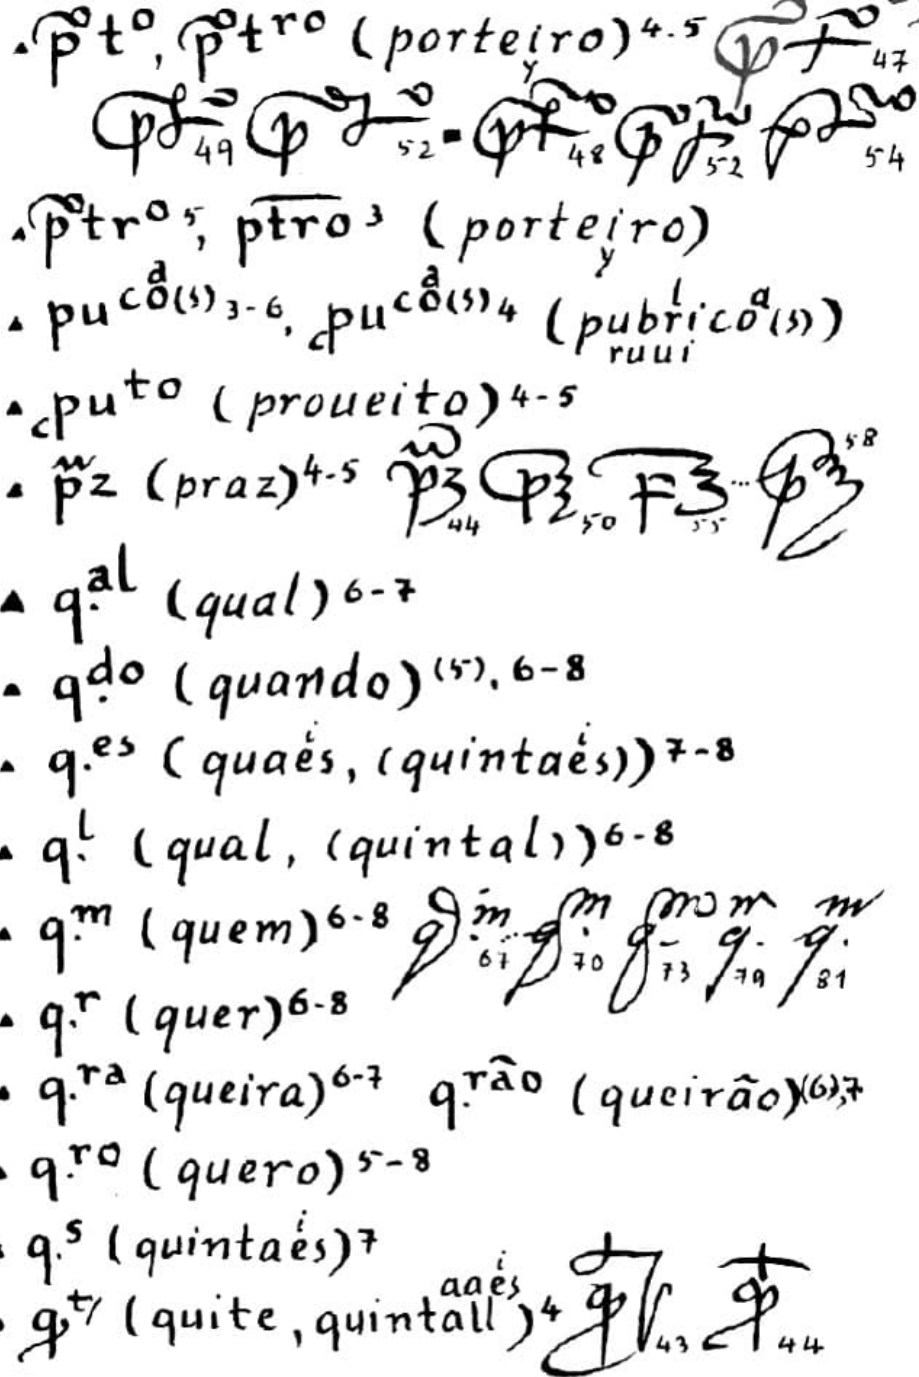 p̃tº, p̃tʳº (porteiro)⁴·⁵ 47
y
49 52 48 52 54
p̃trº ⁵, ptro ³ (porteiro)
y
puᶜôᵃ(s) 3-6, puᶜôᵃ(s) 4 (pubricoᵃ(s))
l
ruui
puᵗº (proueito)⁴⁻⁵
p̃z (praz)⁴⁻⁵ 44 50 55 ... 58
q.ᵃˡ (qual)⁶⁻⁷
q.ᵈº (quando)⁽⁵⁾·⁶⁻⁸
q.ᵉˢ (quaeⁱs, (quintaeⁱs))⁷⁻⁸
q.ˡ (qual, (quintal))⁶⁻⁸
q.ᵐ (quem)⁶⁻⁸ 67 ... 70 73 79 81
q.ʳ (quer)⁶⁻⁸
q.ʳᵃ (queira)⁶⁻⁷ q.ʳãº (queirão)⁽⁶⁾,⁷
q.ʳº (quero)⁵⁻⁸
q.ˢ (quintaeⁱs)⁷
aaeⁱs
qᵗ/ (quite, quintall)⁴ 43 44